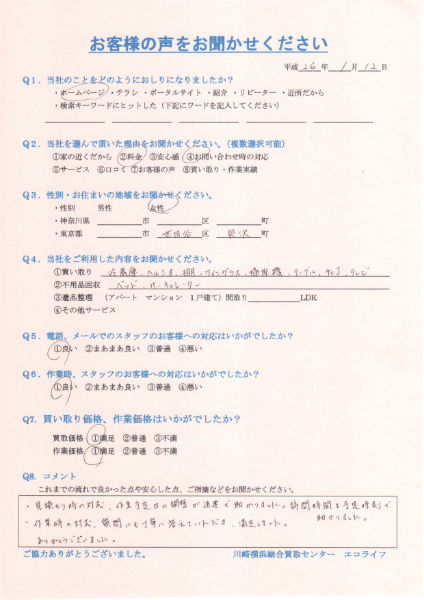 お客様の声をお聞かせください
平成 26 年 1 月 12 日
Q1．当社のことをどのようにおしりになりましたか？
・ホームページ ・チラシ ・ポータルサイト ・紹介 ・リピーター ・近所だから
・検索キーワードにヒットした（下記にワードを記入してください）
Q2．当社を選んで頂いた理由をお聞かせください。（複数選択可能）
①家の近くだから ②料金 ③安心感 ④お問い合わせ時の対応
⑤サービス ⑥口コミ ⑦お客様の声 ⑧買い取り・作業実績
Q3．性別・お住まいの地域をお聞かせください。
・性別 男性 女性
・神奈川県 市 区 町
・東京都 市 世田谷 区 奥沢 町
Q4．当社をご利用した内容をお聞かせください。
①買い取り 冷蔵庫、ヘルシオ、棚、ワイングラス、掃除機、テーブル、テレビ
②不用品回収 ベッド、サーキュレーター
③遺品整理 （アパート マンション 1戸建て）間取り LDK
④その他サービス
Q5．電話、メールでのスタッフのお客様への対応はいかがでしたか？
①良い ②まあまあ良い ③普通 ④悪い
Q6．作業時、スタッフのお客様への対応はいかがでしたか？
①良い ②まあまあ良い ③普通 ④悪い
Q7．買い取り価格、作業価格はいかがでしたか？
買取価格 ①満足 ②普通 ③不満
作業価格 ①満足 ②普通 ③不満
Q8．コメント
これまでの流れで良かった点や安心した点、ご指摘などをお聞かせください
・見積もり時の対応、作業予定日の調整が迅速で助かりました。訪問時間も予定時刻で
助かりました。
・作業時の対応、質問にも丁寧に答えていただき、満足しました。
ありがとうございました。
ご協力ありがとうございました。 川崎横浜総合買取センター エコライフ